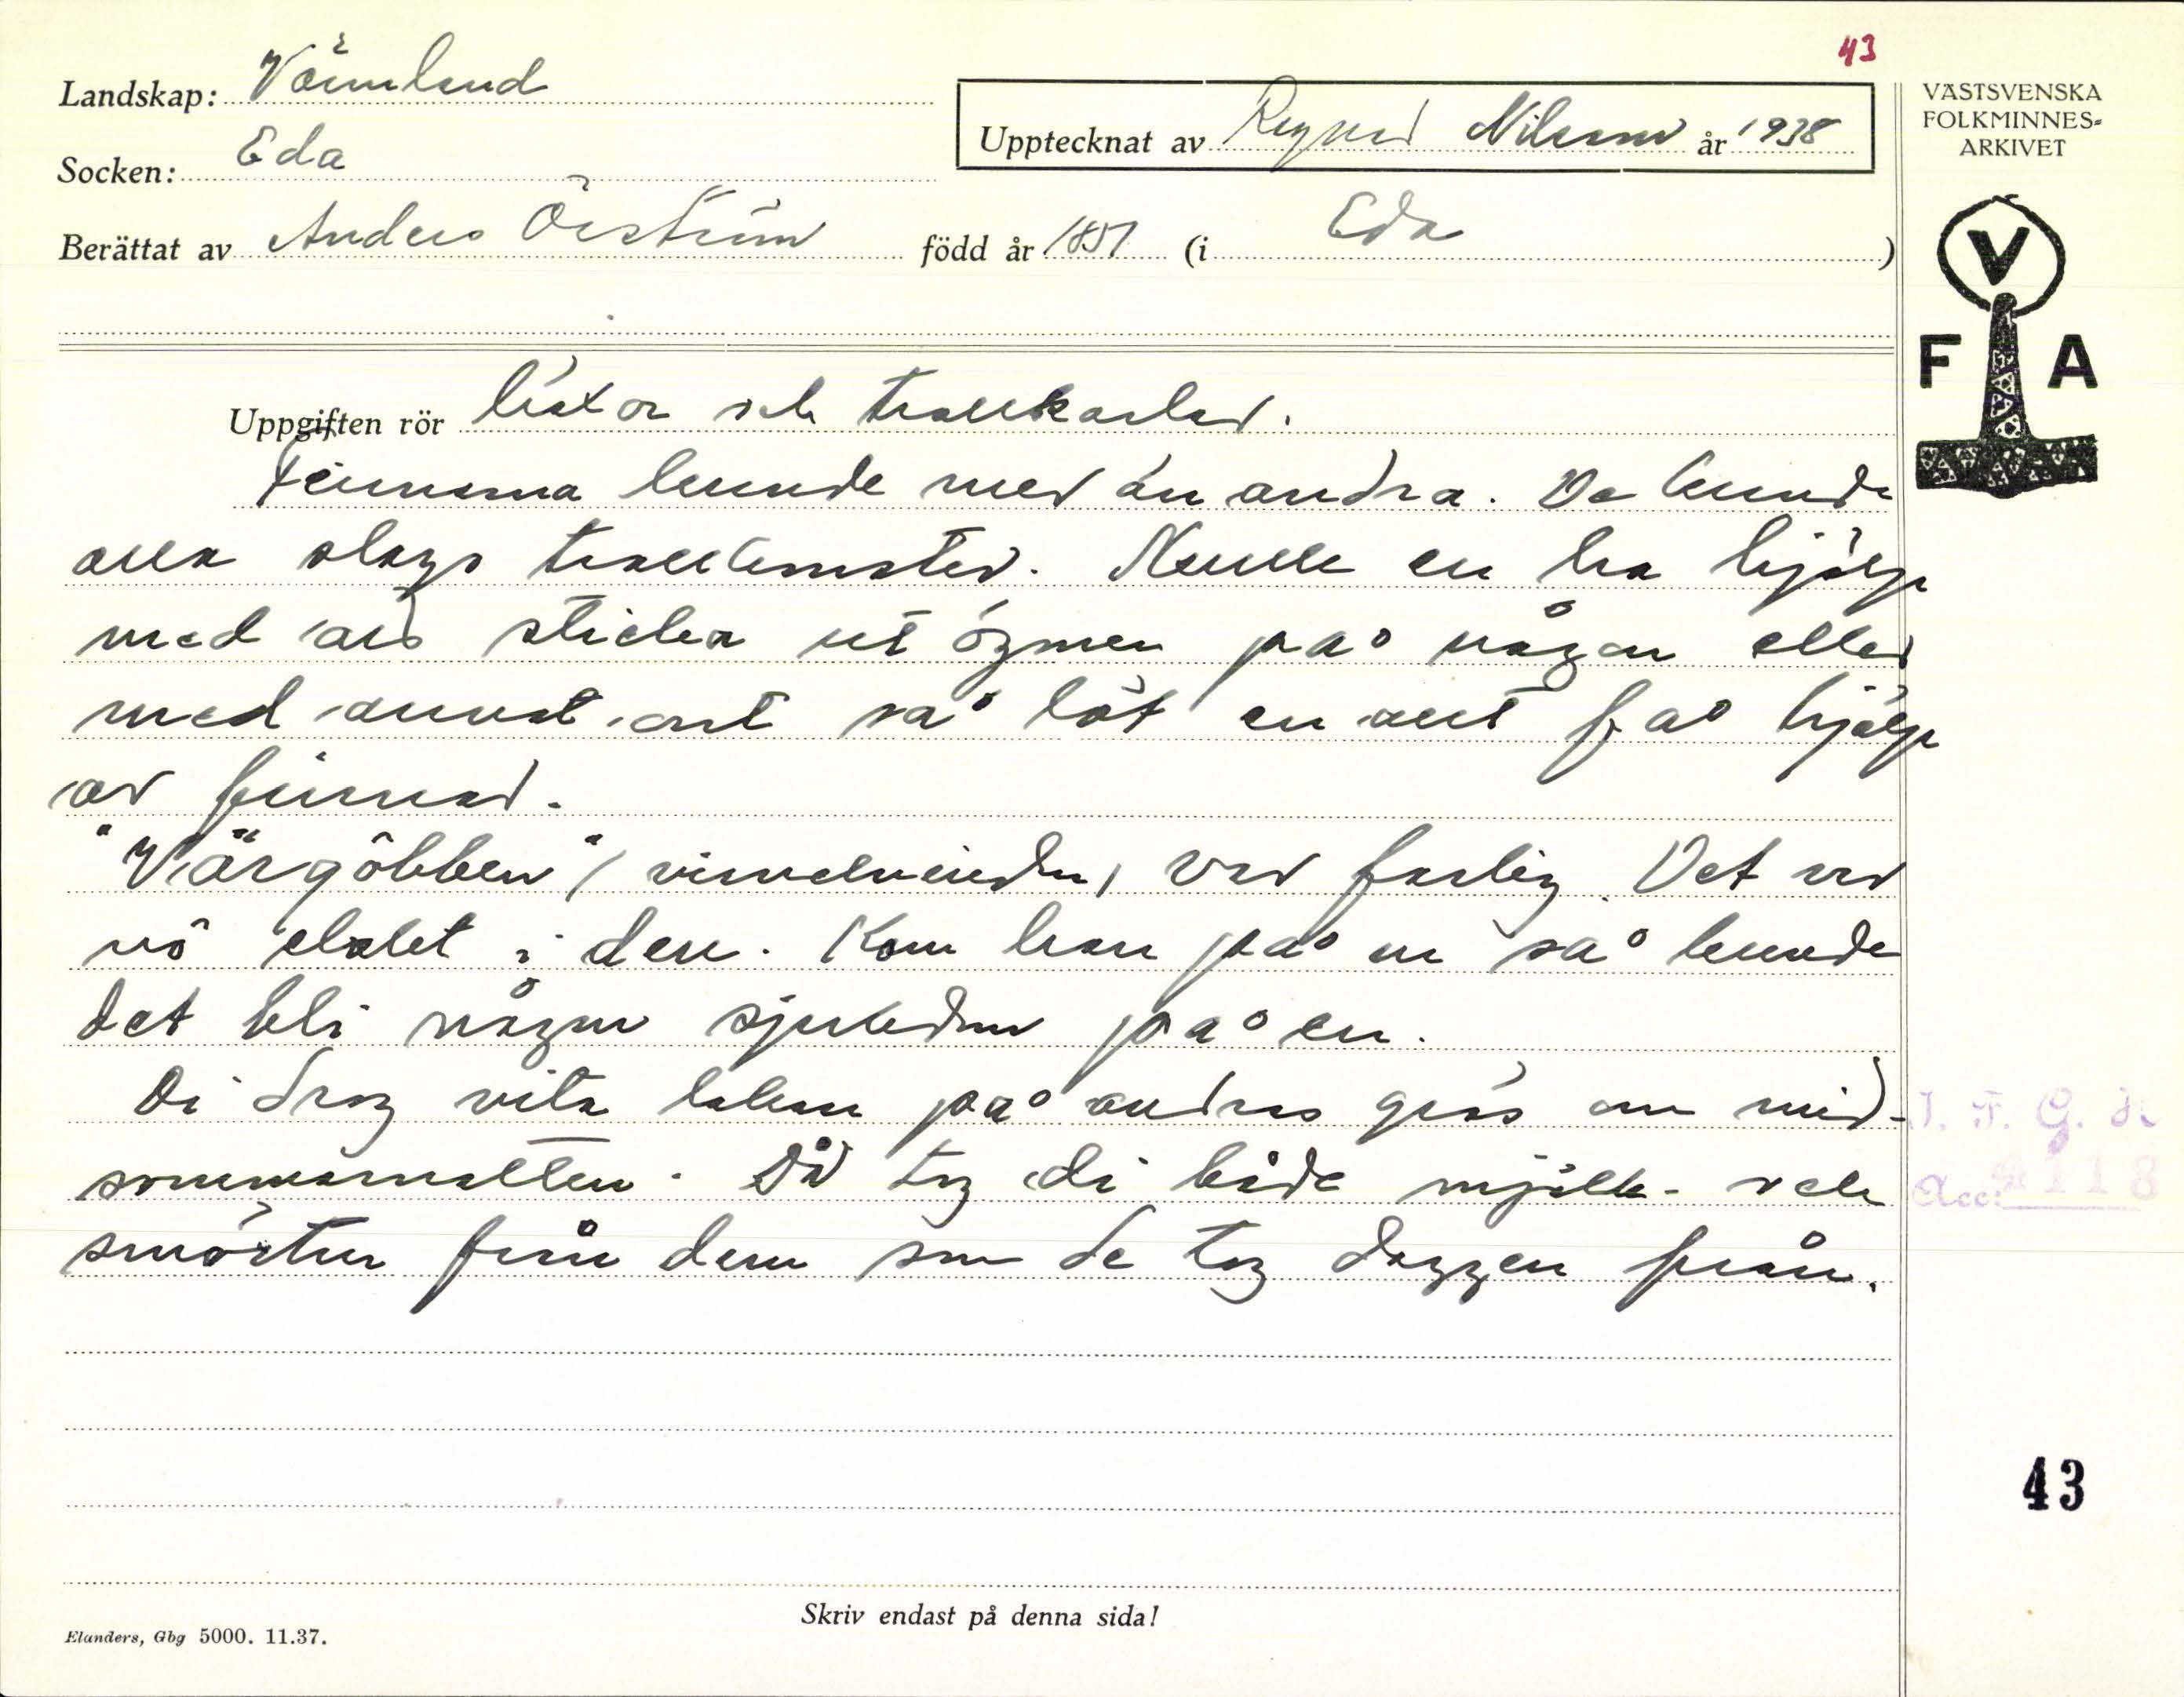 43
Landskap: Värmland
Socken: Eda
Upptecknat av Ragnar Nilsson år 1938
Berättat av Anders Öström född år 1851 (i Eda)
VÄSTSVENSKA
FOLKMINNES-
ARKIVET
V
F A
Uppgiften rör häxor och trollkarlar.
Finnarna kunde mer än andra. De kunde
alla slags trollkonster. Skulle en ha hjälp
med att sticka ut ögmen på någon eller
med annat ont så löt en att få hjälp
av finnar.
"Värgöbben" (virvelvinden) var farlig. Det var
nô elakt i den. Kom han på en så kunde
det bli någon sjukdom på en.
Di drog vita lakan på andras gräs om mid-
sommarnatten. Då tog di både mjölk- och
smörtur från dem som de tog daggen från.
I. F. G. H.
Acc: 4118
43
Skriv endast på denna sida!
Elanders, Gbg 5000. 11.37.